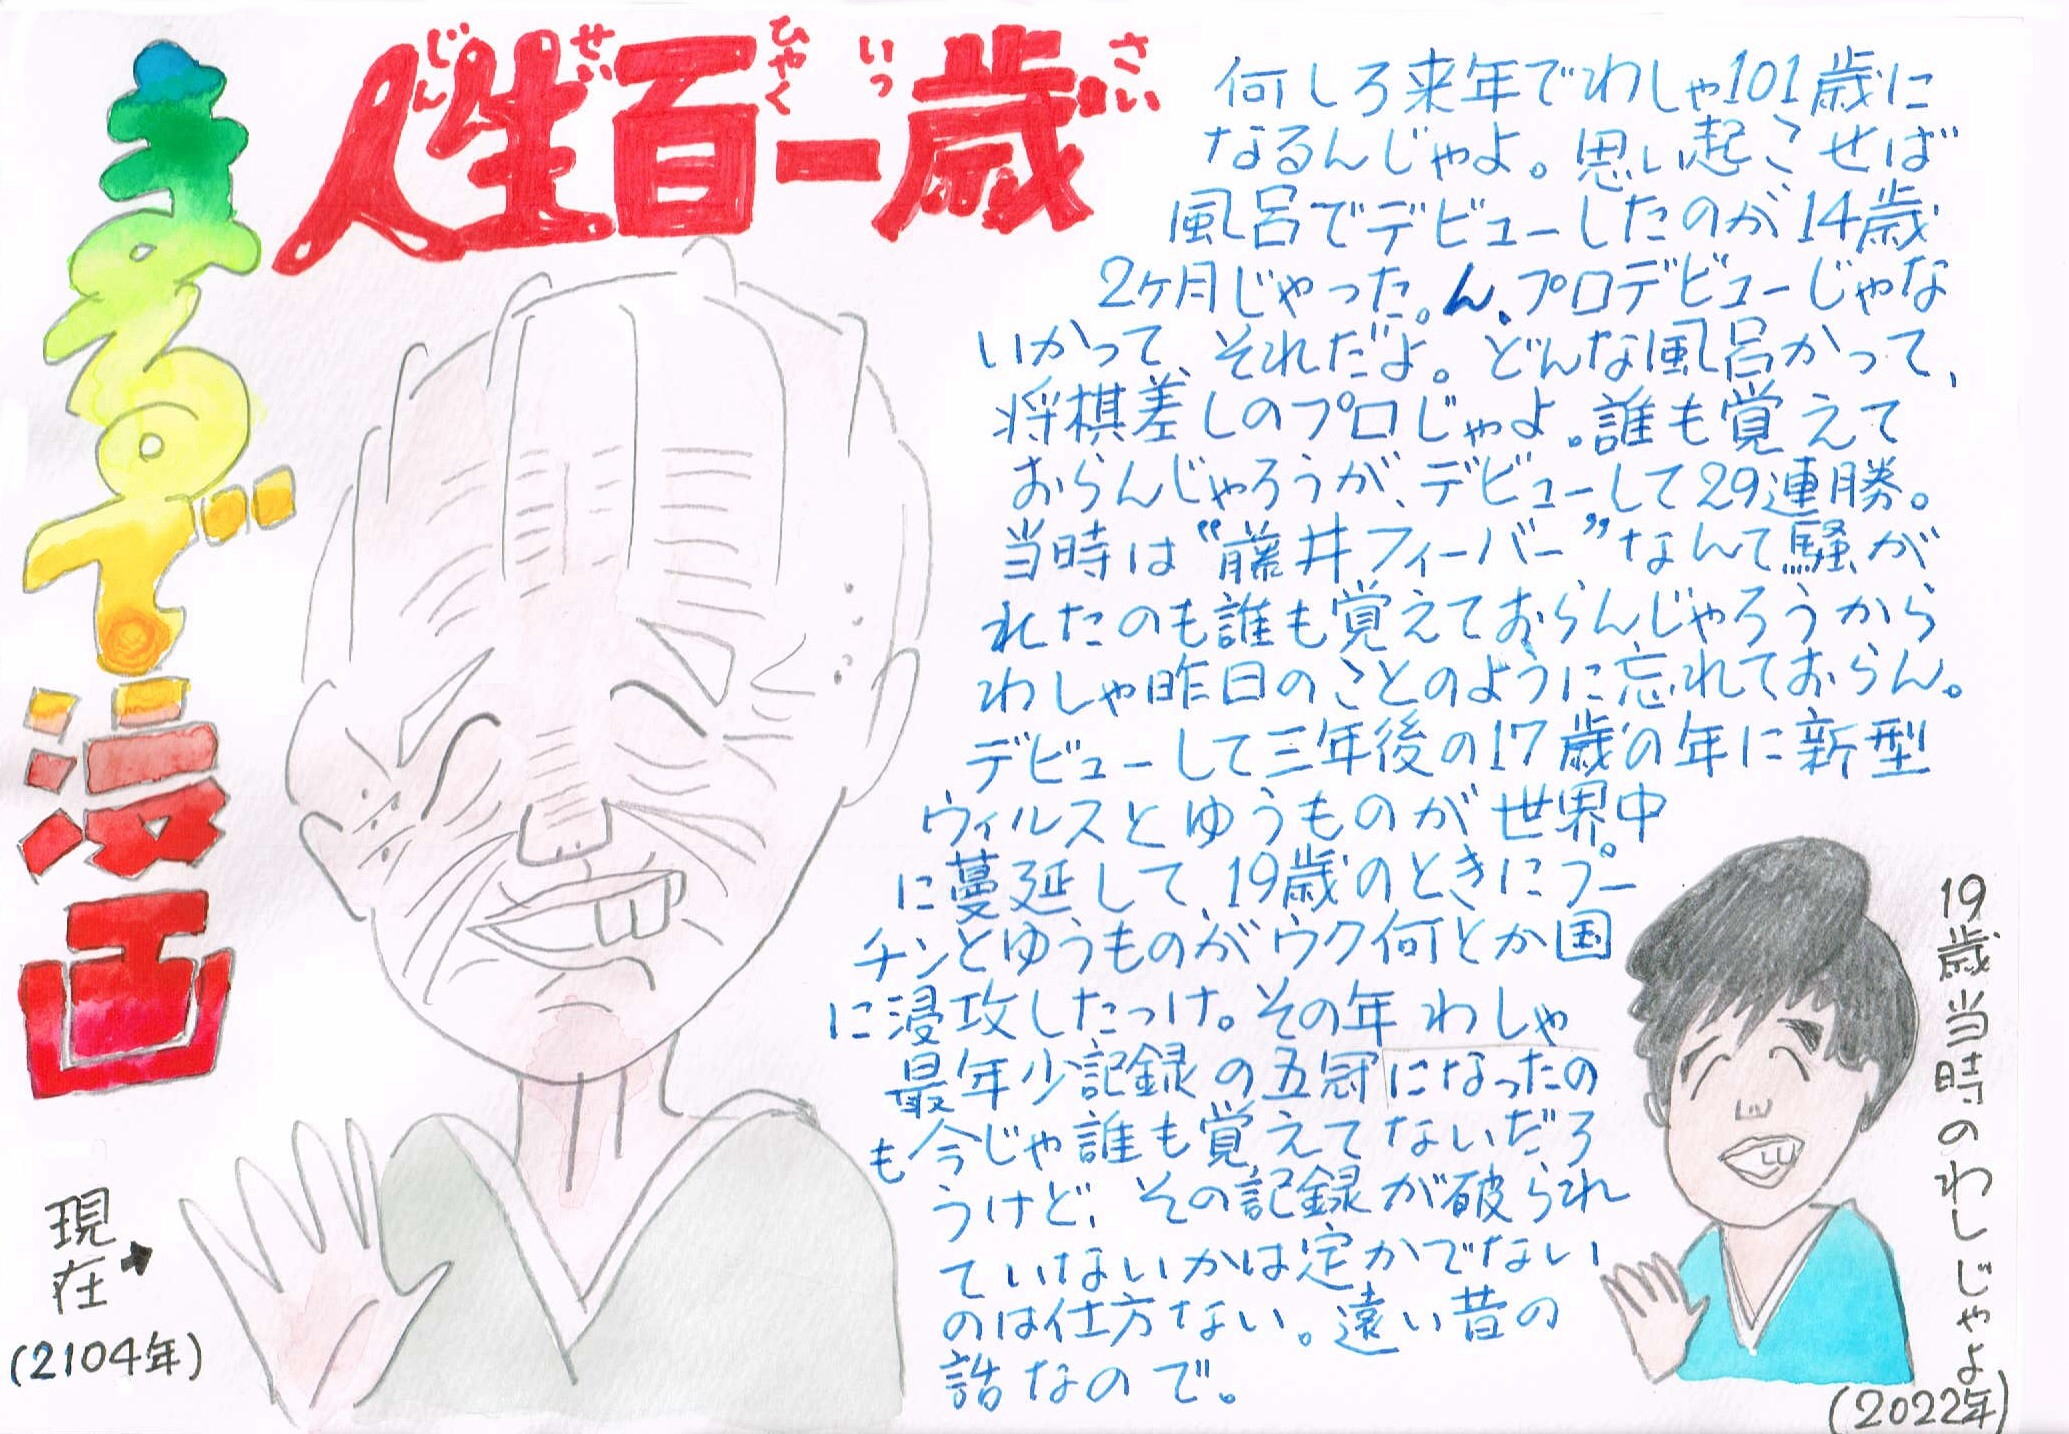 まるで漫画
人生百一歳
じんせいひゃくいっさい
何しろ来年でわしゃ101歳に
なるんじゃよ。思い起こせば
風呂でデビューしたのが14歳
2ヶ月じゃった。ん、プロデビューじゃな
いかって、それだよ。どんな風呂かって、
将棋差しのプロじゃよ。誰も覚えて
おらんじゃろうが、デビューして29連勝。
当時は“藤井フィーバー”なんて騒が
れたのも誰も覚えておらんじゃろうから
わしゃ昨日のことのように忘れておらん。
デビューして三年後の17歳の年に新型
ウィルスとゆうものが世界中
に蔓延して、19歳のときにプー
チンとゆうものがウク何とか国
に浸攻したっけ。その年わしゃ
最年少記録の五冠になったの
も今じゃ誰も覚えてないだろ
うけど、その記録が破られ
ていないかは定かでない
のは仕方ない。遠い昔の
話なので。
現在
(2104年)
19歳当時のわしじゃよ
(2022年)